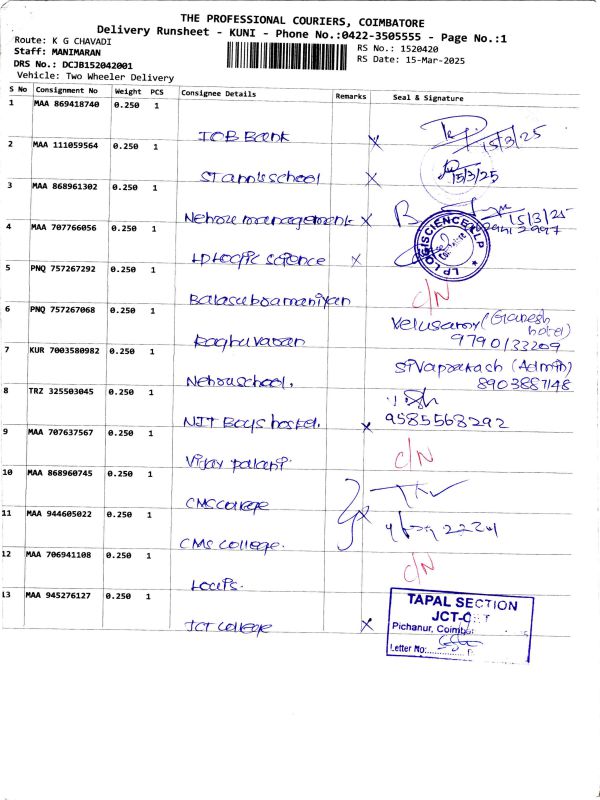 THE PROFESSIONAL COURIERS, COIMBATORE
Delivery Runsheet - KUNI - Phone No.:0422-3505555 - Page No.:1
Route: K G CHAVADI
RS No.: 1520420
Staff: MANIMARAN
RS Date: 15-Mar-2025
DRS No.: DCJB152042001
Vehicle: Two Wheeler Delivery
S No Consignment No Weight PCS Consignee Details Remarks Seal & Signature
1 MAA 869418740 0.250 1
IOB Bank x 15/3/25
2 MAA 111059564 0.250 1
St annis school x 15/3/25
3 MAA 868961302 0.250 1
Nehru management x 15/3/25
4 MAA 707766056 0.250 1
LP Logic science x
LP LOGISCIENCE LLP
5 PNQ 757267292 0.250 1
Balasuboamaniyan C/N
6 PNQ 757267068 0.250 1
Velusamy (Ganesh hotel)
Raghuvaran 9790133209
7 KUR 7003580982 0.250 1
Sivaprakash (Admin)
Nehru school. 8903887148
8 TRZ 325503045 0.250 1
NIT Boys hostel. x 9585568292
9 MAA 707637567 0.250 1
Vijay palani. C/N
10 MAA 868960745 0.250 1
CMS college
11 MAA 944605022 0.250 1
x
CMS college.
12 MAA 706941108 0.250 1
C/N
13 MAA 945276127 0.250 1
JCT college x
TAPAL SECTION
Pichanur,
Letter No: